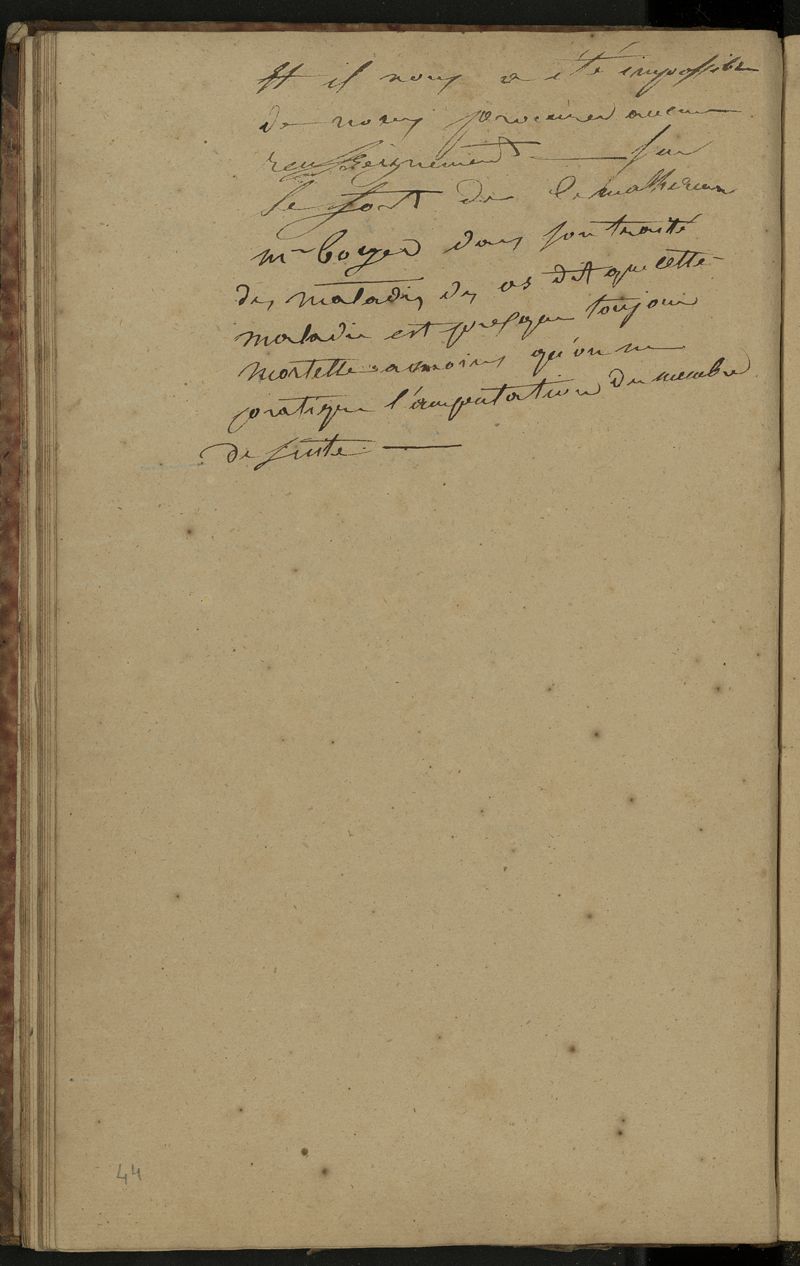 Et il nous a été impossible
de nous procurer aucun
renseignement — sur
le sort de ce malheureux
mr boyer dans son traité
des maladies des os dit que cette
maladie est presque toujour
mortelle amoins qu'on ne
pratique l'amputation du membre
de suite —
44